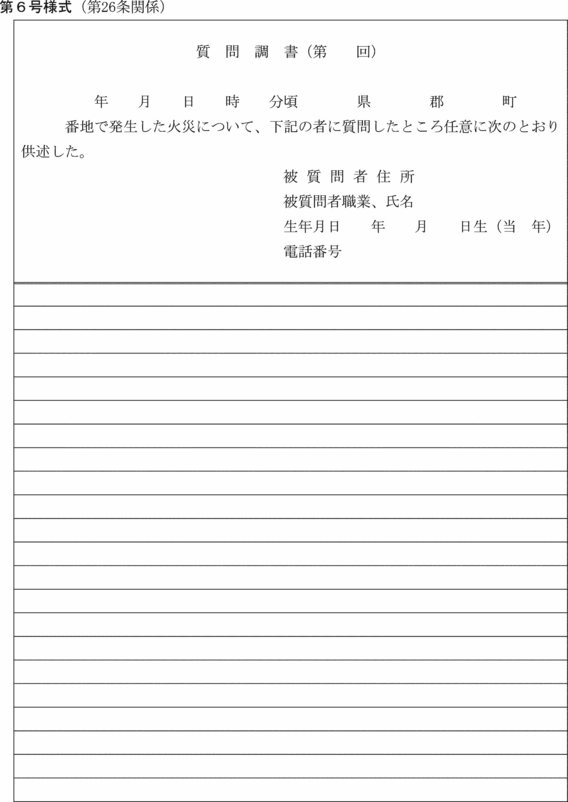 第６号様式（第26条関係）
質　問　調　書（第　　回）
年　　月　　日　　時　　分頃　　　　県　　　　郡　　　　町
番地で発生した火災について、下記の者に質問したところ任意に次のとおり
供述した。
被質問者住所
被質問者職業、氏名
生年月日　　年　　月　　日生（当　年）
電話番号